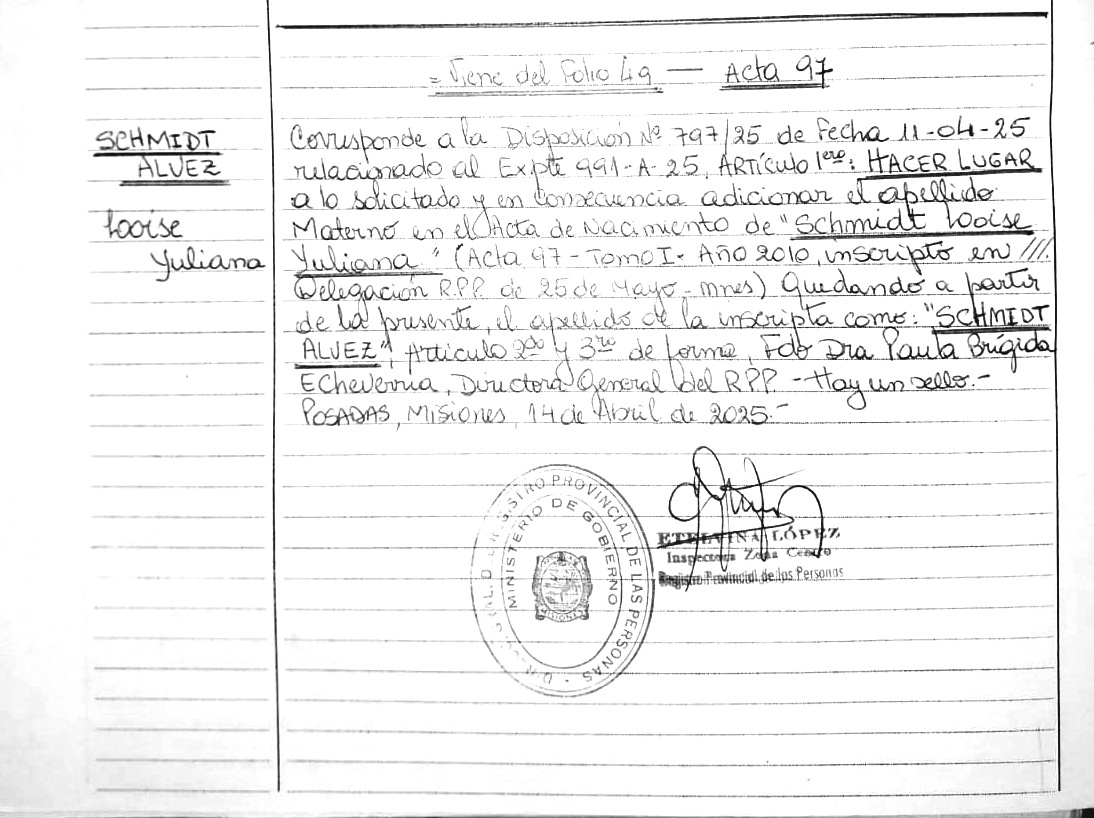 = Viene del Folio 49 — Acta 97
SCHMIDT
ALVEZ
Looise
Yuliana
Corresponde a la Disposición Nº 797/25 de Fecha 11-04-25
relacionado al Expte 991-A-25, Artículo 1ero: HACER LUGAR
a lo solicitado y en consecuencia adicionar el apellido
Materno en el Acta de Nacimiento de "Schmidt Looise
Yuliana" (Acta 97 - Tomo I - Año 2010, inscripto en ///.
Delegación R.P.P. de 25 de Mayo - Mnes) Quedando a partir
de la presente, el apellido de la inscripta como: "SCHMIDT
ALVEZ", Articulo 2do y 3ro de forma, Fdo Dra Paula Brígida
Echeverria, Directora General del R.P.P. - Hay un sello.-
POSADAS, Misiones, 14 de Abril de 2025.-
REGISTRO PROVINCIAL DE LAS PERSONAS
MINISTERIO DE GOBIERNO
MISIONES
ETELVINA LÓPEZ
Inspectora Zona Centro
Registro Provincial de las Personas